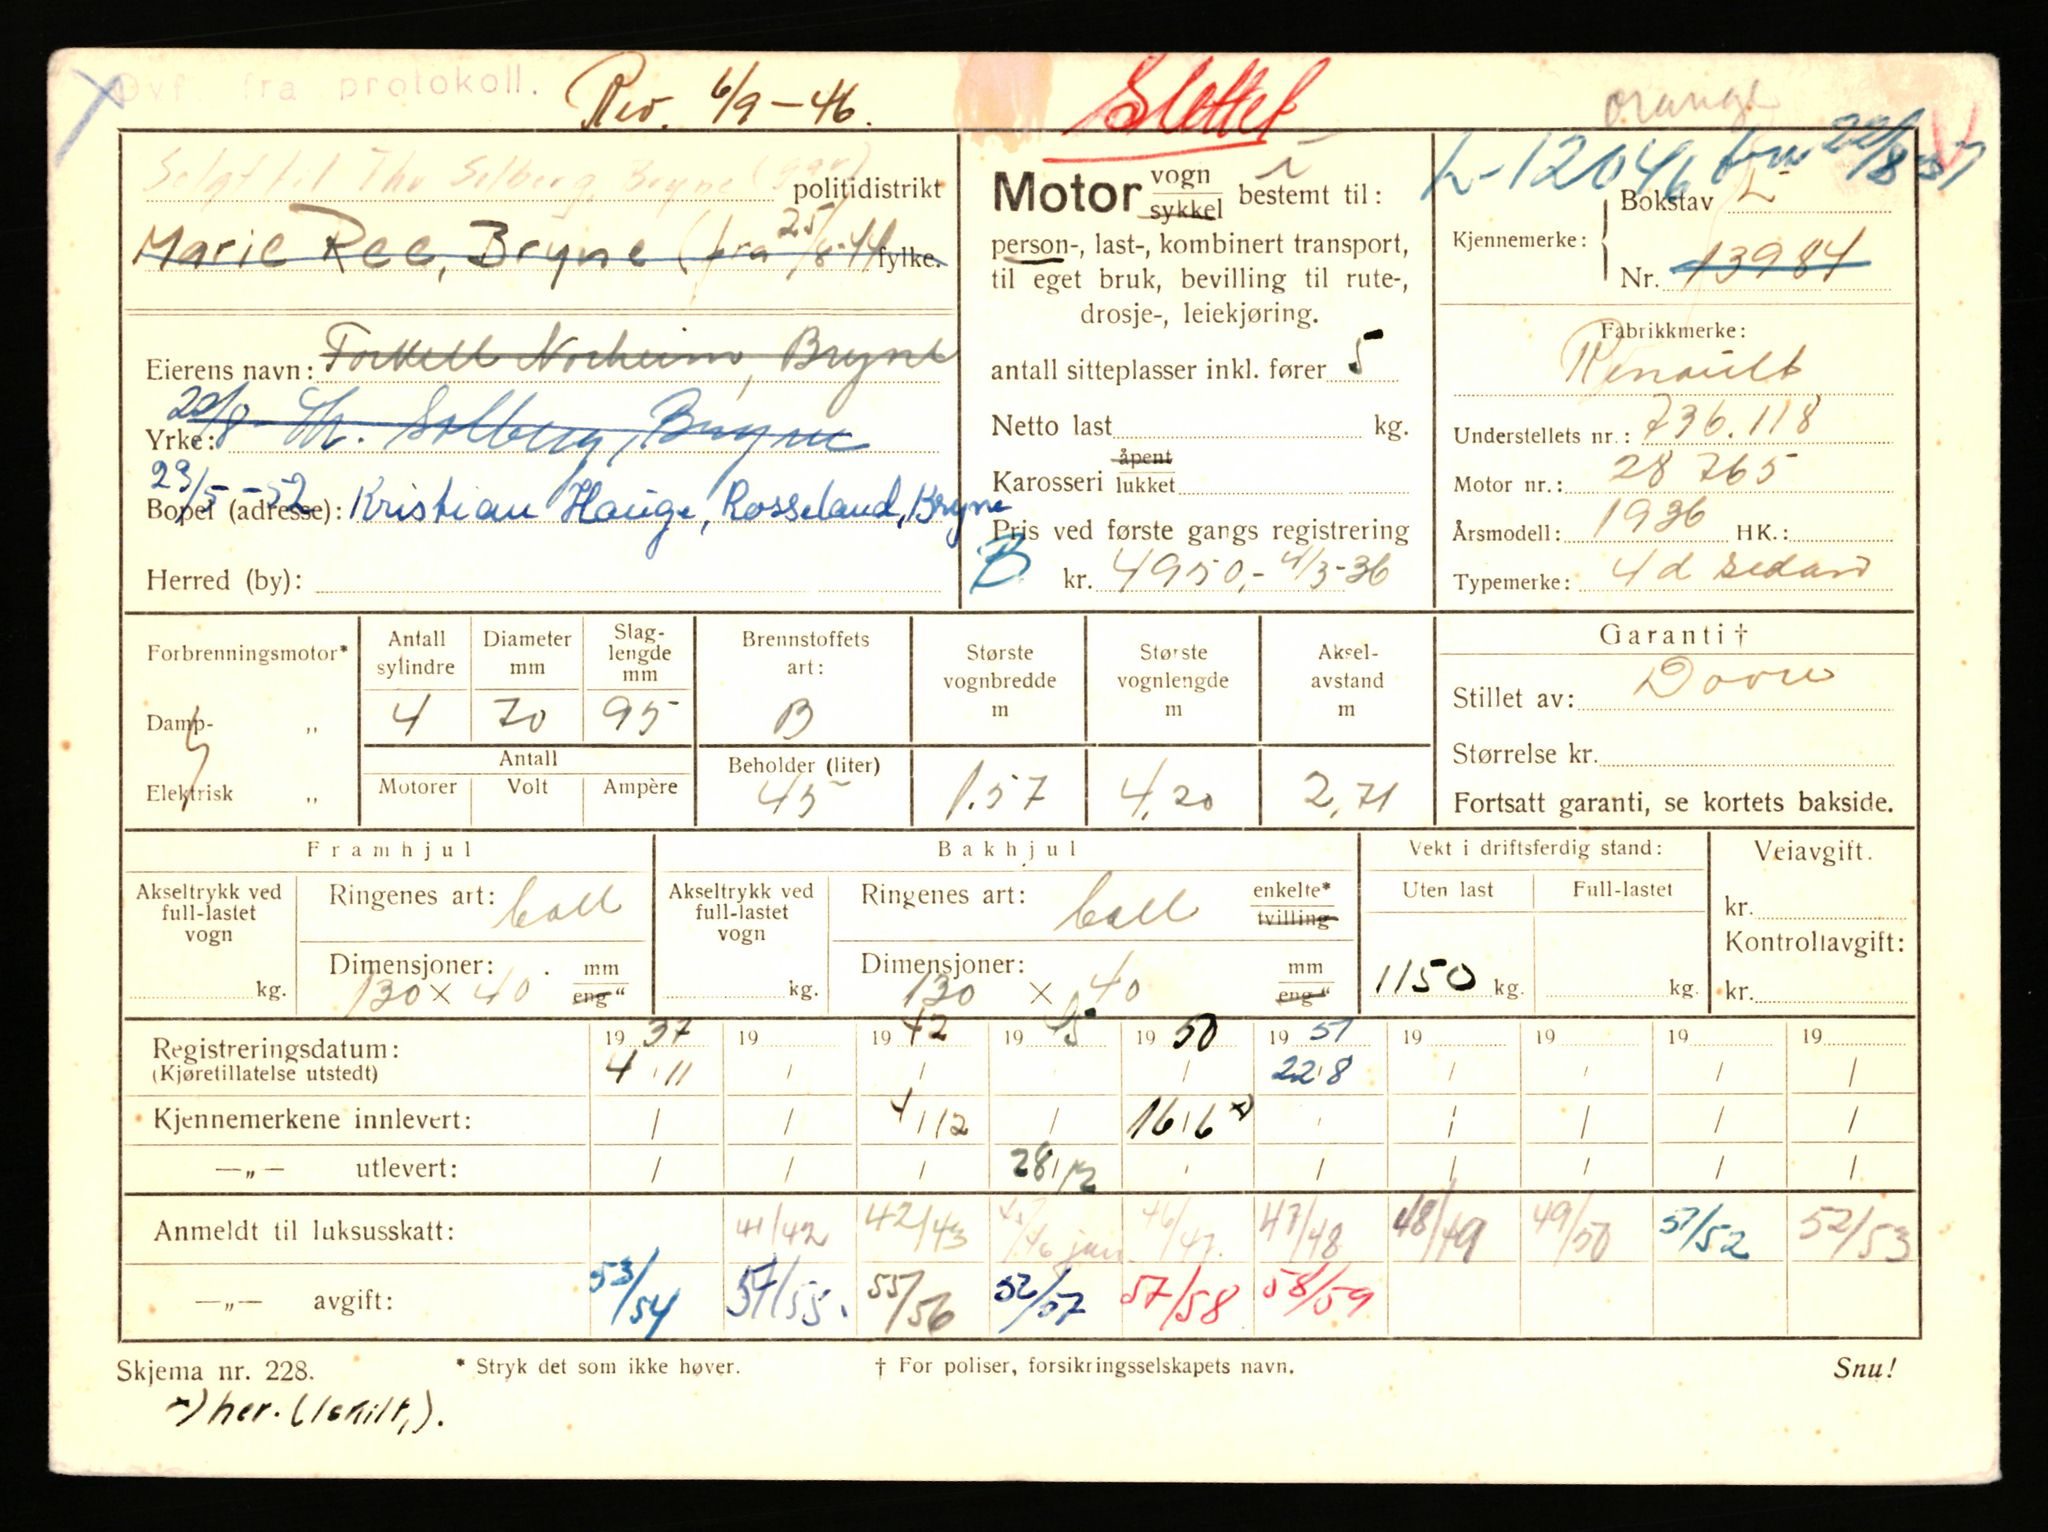 Ovf. fra protokoll.
Rev. 6/9-46.
Slettet
orange
Selgt til Thv Solberg, Bryne politidistrikt
Marie Ree, Bryne (fra 25/8-44 fylke.
Eierens navn: Torkell Norheim, Bryne
Yrke: 22/8 Th. Solberg, Bryne
29/5-52
Bopel (adresse): Kristian Hauge, Rosseland, Bryne
Herred (by):
Motor vogn sykkel bestemt til:
person-, last-, kombinert transport,
til eget bruk, bevilling til rute-,
drosje-, leiekjøring.
antall sitteplasser inkl. fører 5
Netto last kg.
Karosseri åpent lukket
Pris ved første gangs registrering
B kr. 4950,- 4/3-36
L-12046 22/8-51
Kjennemerke: Bokstav L-
Nr. 13984
Fabrikkmerke:
Renault
Understellets nr.: 736.118
Motor nr.: 28765
Årsmodell: 1936 HK.:
Typemerke: 4d sedan
Forbrenningsmotor*
Damp- „
Elektrisk „
Antall sylindre
4
Diameter mm
70
Slag-
lengde
mm
95
Antall
Motorer Volt Ampère
Brennstoffets
art:
B
Beholder (liter)
45
Største
vognbredde
m
1.57
Største
vognlengde
m
4,20
Aksel-
avstand
m
2,71
Garanti †
Stillet av: Dovre
Størrelse kr.
Fortsatt garanti, se kortets bakside.
Framhjul
Akseltrykk ved
full-lastet
vogn
kg.
Ringenes art: ball
Dimensjoner: mm
130 x 40 eng"
Bakhjul
Akseltrykk ved
full-lastet
vogn
kg.
Ringenes art: ball enkelte* tvilling
Dimensjoner: mm
130 x 40 eng"
Vekt i driftsferdig stand:
Uten last Full-lastet
1150 kg. kg.
Veiavgift.
kr.
Kontrollavgift:
kr.
Registreringsdatum: 1937 19 1942 1945 1950 1951 19 19 19 19
(Kjøretillatelse utstedt) 4/11 / / / / 22/8 / / / /
Kjennemerkene innlevert: / / 4/12 / 16/6 x) / / / / /
—„— utlevert: / / / 28/12 / / / / / /
Anmeldt til luksusskatt: 41/42 42/43 45/46 jan 46/47. 47/48 48/49 49/50 51/52 52/53
—„— avgift: 53/54 54/55. 55/56 56/57 57/58 58/59
Skjema nr. 228. * Stryk det som ikke høver. † For poliser, forsikringsselskapets navn. Snu!
x) her. (1 skilt,).